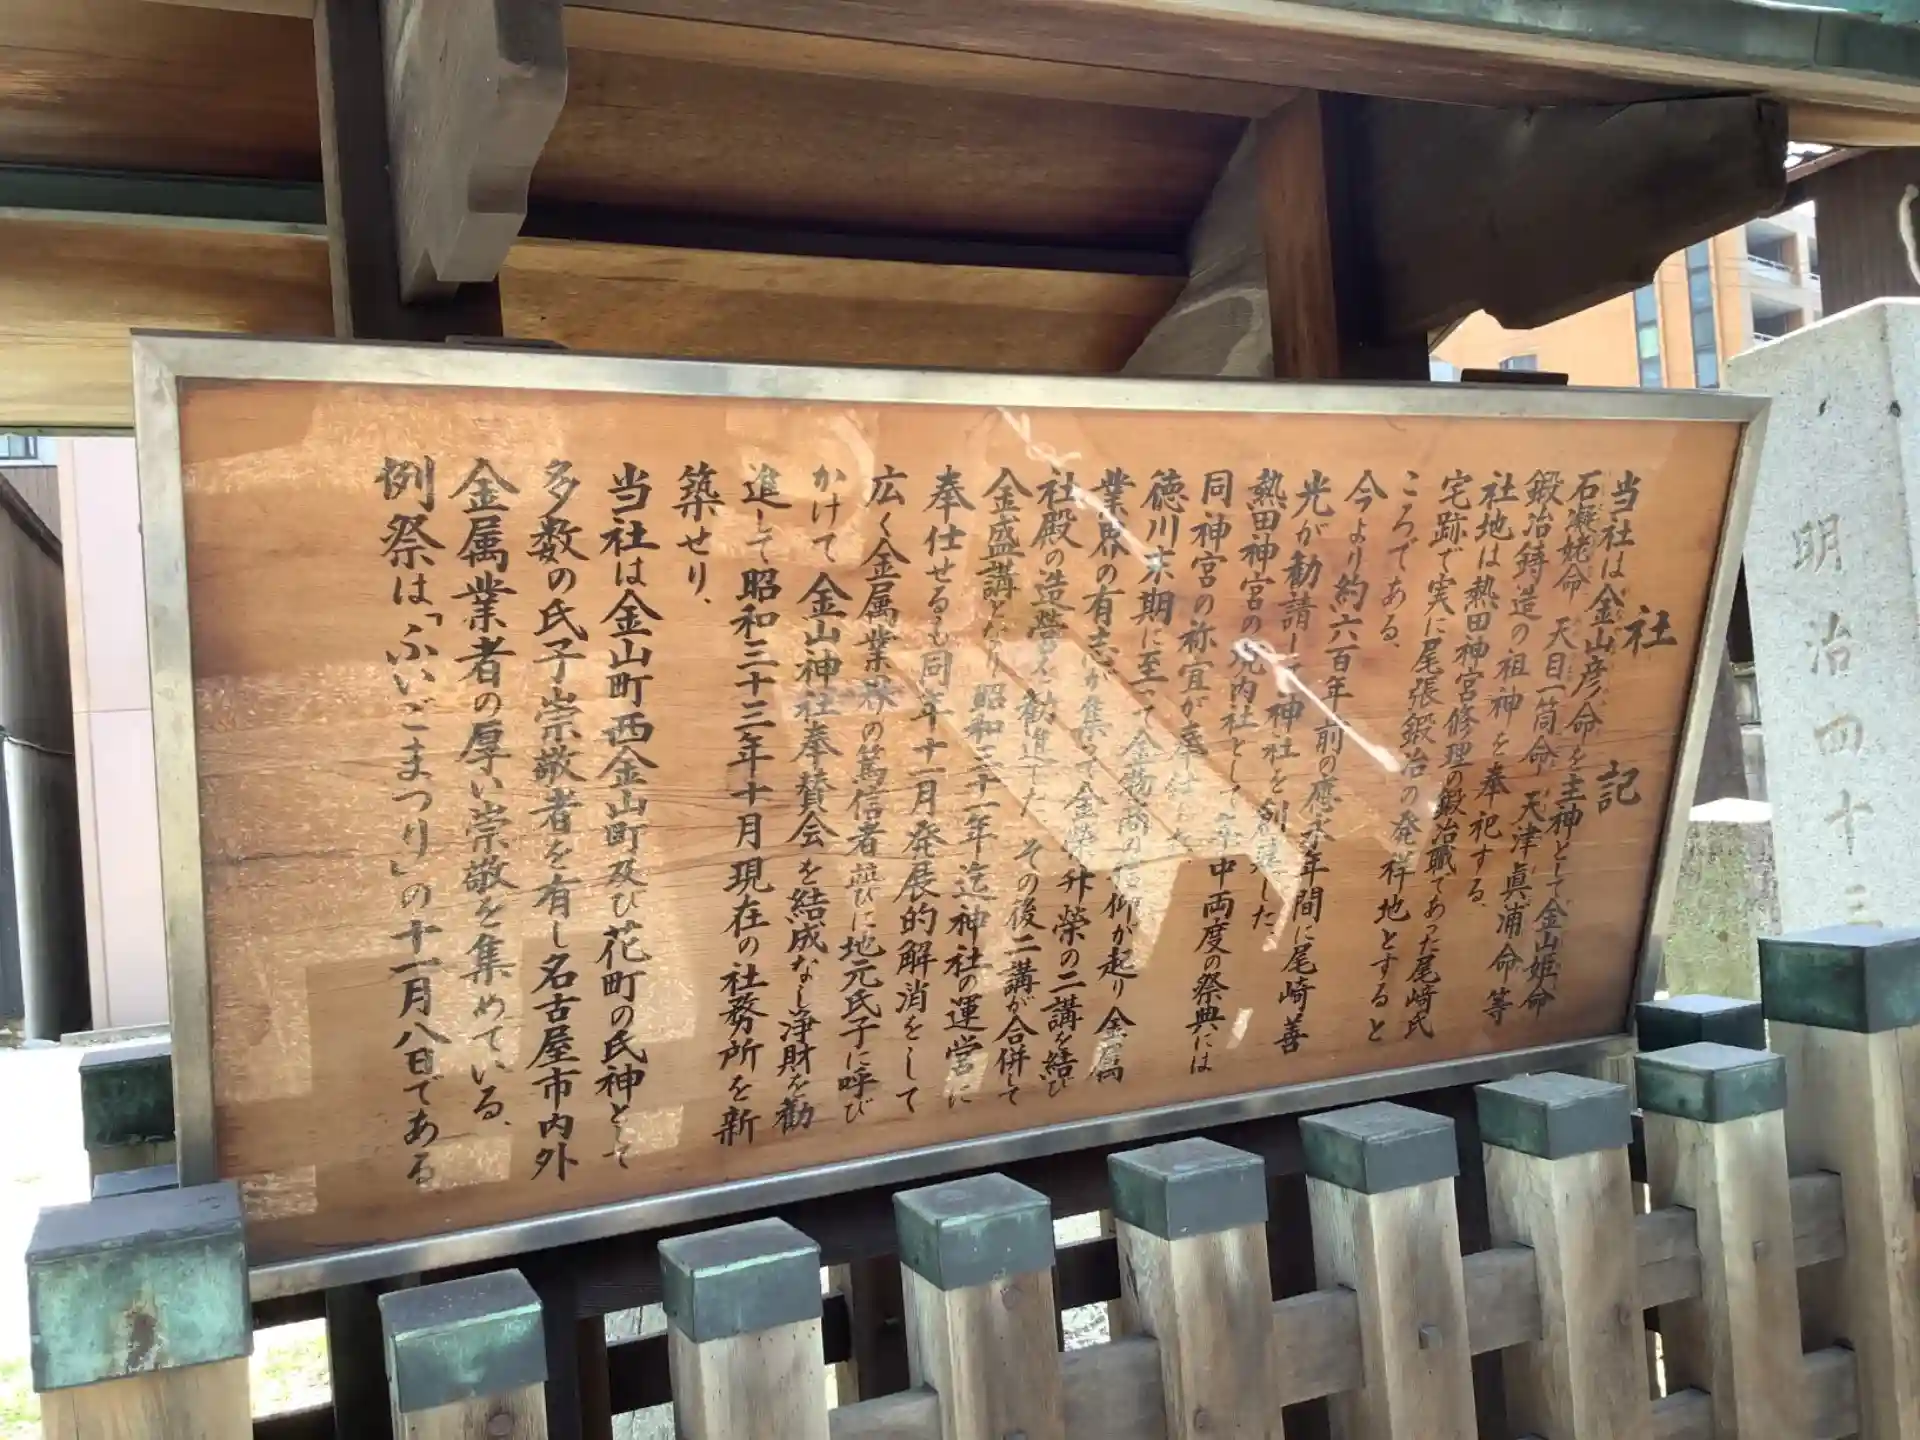 社記
当社は金山彦ノ命を主神として金山姫命
石凝姥命 天目一筒命 天津眞浦命等
鍛冶鋳造の祖神を奉祀する、
社地は熱田神宮修理の鍛冶職であった尾﨑氏
宅跡で実に尾張鍛冶の発祥地とすると
ころである、
今より約六百年前の應永年間に尾崎善
光が勧請して神社を創建した、
熱田神宮の境内社として年中両度の祭典には
同神宮の祢宜が奉仕した
徳川末期に至って金物商の信仰が起り金属
業界の有志が集って金榮升榮の二講を結び
社殿の造営を勧進した その後二講が合併して
金盛講となり昭和三十一年迄神社の運営に
奉仕せるも同年十一月発展的解消をして
広く金属業界の篤信者並びに地元氏子に呼び
かけて金山神社奉賛会を結成なし浄財を勧
進して昭和三十三年十月現在の社務所を新
築せり、
当社は金山町西金山町及び花町の氏神として
多数の氏子崇敬者を有し名古屋市内外
金属業者の厚い崇敬を集めている、
例祭は「ふいごまつり」の十一月八日である
明治四十三